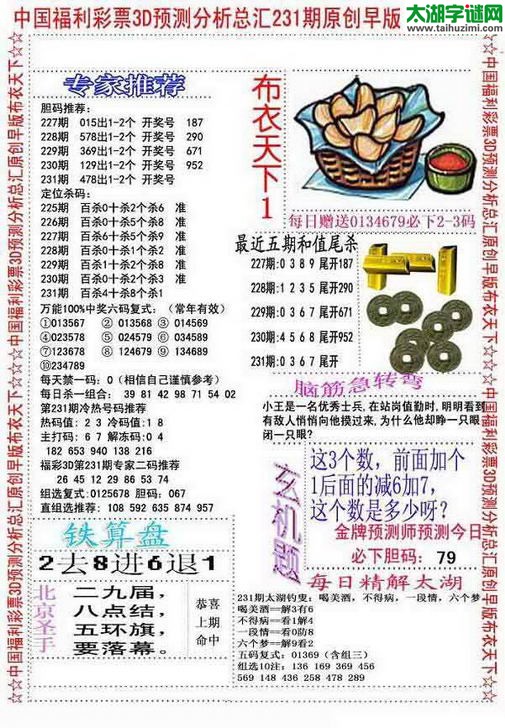 太湖字谜网
www.taihuzimi.com
中国福利彩票3D预测分析总汇231期原创早版
☆☆中国福利彩票3D预测分析总汇原创早版布衣天下☆☆
专家推荐
胆码推荐:
227期 015出1-2个 开奖号 187
228期 578出1-2个 开奖号 290
229期 369出1-2个 开奖号 671
230期 129出1-2个 开奖号 952
231期 478出1-2个 开奖号
定位杀码:
225期 百杀0十杀2个杀6 准
226期 百杀0十杀2个杀5 准
227期 百杀5十杀7个杀6 准
228期 百杀0十杀3个杀6 准
229期 百杀3十杀0个杀5 准
230期 百杀0十杀2个杀3 准
231期 百杀4十杀8个杀1
万能100%中奖六码复式: (常年有效)
①013567 ②013568 ③014569
④023578 ⑤024579 ⑥034578
⑦123678 ⑧124679 ⑨134689
⑩234789
每天禁一码: 0 (相信自己谨慎参考)
每日杀一组合: 39 81 42 98 71 54 02
第231期冷热号码推荐
热码值: 2 3 冷码值: 1 8
主打码: 6 7 解冻码: 0 4
182 653 940 138 216
福彩3D第231期专家二码推荐
26 45 12 29 86 53 74
组选复式: 0125678 胆码: 067
直组选推荐: 108 592 635 874 957
布衣天下1
每日赠送0134679必下2-3码
最近五期和值尾杀
227期: 0 3 8 9 尾开187
228期: 1 2 3 5 尾开290
229期: 0 3 6 7 尾开671
230期: 4 5 6 8 尾开952
231期: 0 3 6 7 尾开
脑筋急转弯
小王是一名优秀士兵,在站岗值勤时,明明看到
有敌人悄悄向他摸过来,为什么他却睁一只眼
闭一只眼?
玄机题
这3个数, 前面加个
1后面的减6加7,
这个数是多少呀?
金牌预测师预测今日
必下胆码: 79
铁算盘
2去8进6退1
北京圣手
二九届,
八点结,
五环旗,
要落幕。
恭喜
上期
命中
每日精解太湖
231期太湖钓叟: 喝美酒, 不得病, 一段情, 六个梦
喝美酒==解3有6
不得病==看1解4
一段情==看0防8
六个梦==解9看2
五码复式: 01369 (含组三)
组选10注: 136 169 369 456
569 148 436 258 478 289
☆☆中国福利彩票3D预测分析总汇原创早版布衣天下☆☆